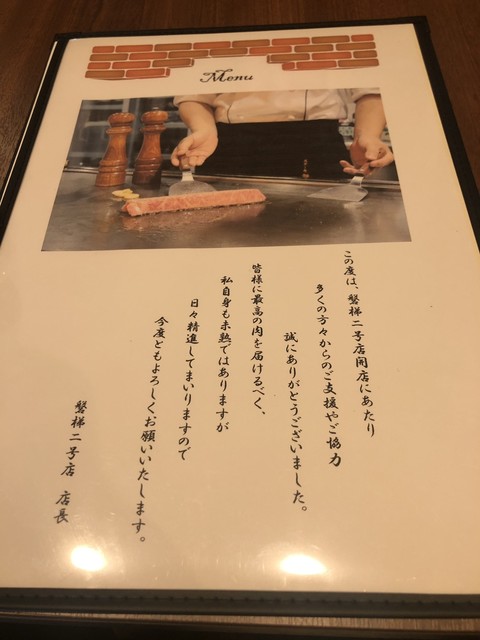 Menu
この度は、磐梯二号店開店にあたり
多くの方々からのご支援やご協力
誠にありがとうございました。
皆様に最高の肉を届けるべく、
私自身も未熟ではありますが
日々精進してまいりますので
今度ともよろしくお願いいたします。
磐梯二号店 店長